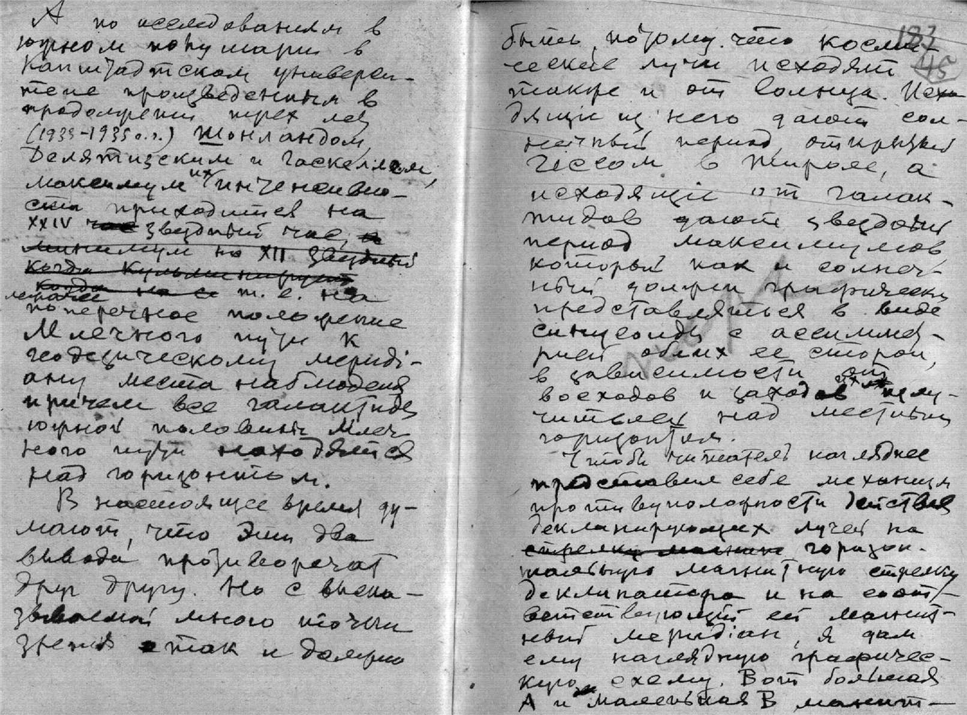 А по исследованиям в
южном полушарии в
Капштадтском универси-
тете произведенным в
продолжении трех лет
(1933-1935 г.г.) Шонландом,
Делятицским и Гаскеллом,
максимум их интенсивно-
сти приходится на
XXIV час звездный час, а
минимум на XII звездный
когда кульминирует
когда на с т. е. на
поперечное положение
Млечного пути к
геодезическому мериді-
ану места наблюдения
причем все галактиды
южной половины Млеч-
ного пути находятся
над горизонтом.
В настоящее время ду-
мают, что эти два
вывода противоречат
друг другу. Но с выска-
зываемой мною точки
зрения так и должно
183
45
быть, потому что косми-
ческие лучи исходят
также и от Солнца. Исхо-
дящие из него дают сол-
нечный период, открытый
Гессом в Тироле, а
исходящие от галак-
тидов дают звездный
период максимумов
который как и солнеч-
ный должен графически
представляться в виде
синусоиды с ассиммет-
рией обоих ее сторон,
в зависимости от
восходов и заходов их излу-
чителей над местным
горизонтом.
Чтоб читатель нагляднее
представил себе механизм
противуположности действия
деклинирующих лучей на
стрелку магнит горизон-
тальную магнитную стрелку
деклинатора и на соот-
ветствующий ей магнит-
ный меридіан, я дам
ему наглядную графичес-
кую схему. Вот большая
А и маленькая В магнит-